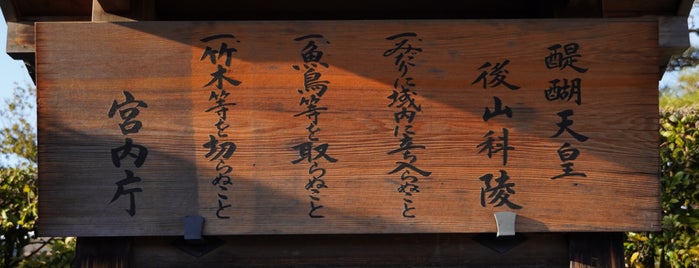 醍醐天皇
後山科陵
一、みだりに域内に立ち入らぬこと
一、魚鳥等を取らぬこと
一、竹木等を切らぬこと
宮内庁